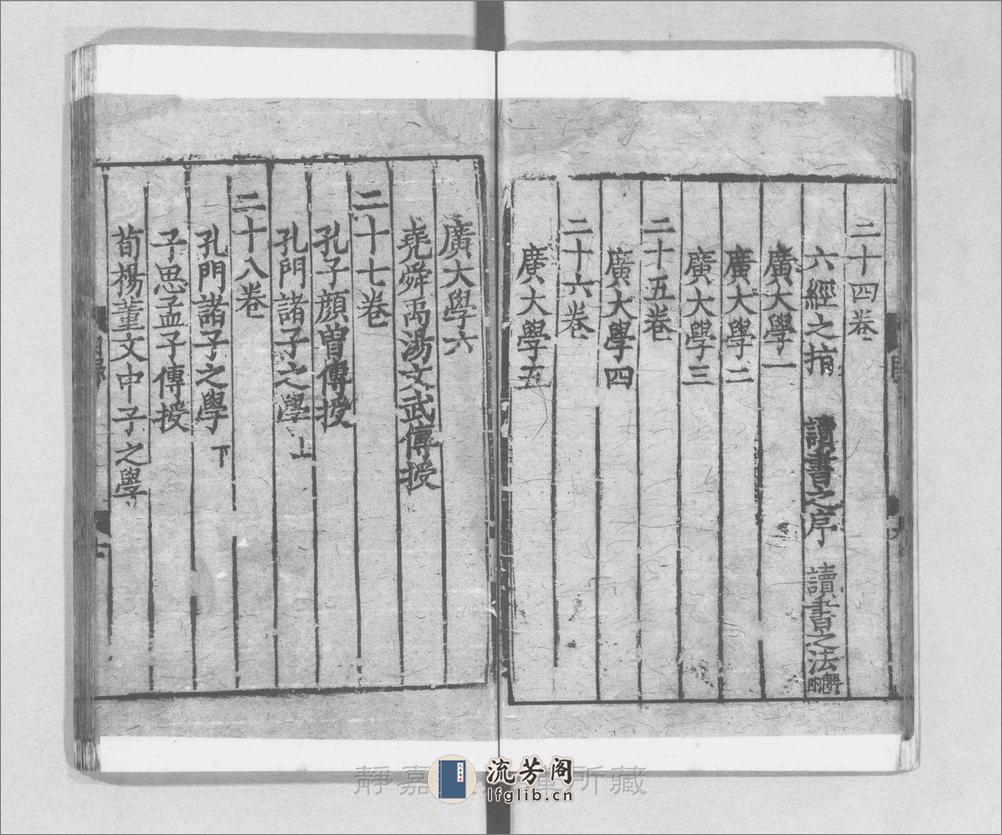 二十四卷
六經之指 讀書之序 讀書之法
廣大學一
廣大學二
廣大學三
二十五卷
廣大學四
二十六卷
廣大學五
廣大學六
堯舜禹湯文武傳授
二十七卷
孔子顔曾傳授
孔門諸子之學 上
二十八卷
孔門諸子之學 下
子思孟子傳授
荀楊董文中子之學
靜嘉 所藏
流芳阁
lfglib.cn